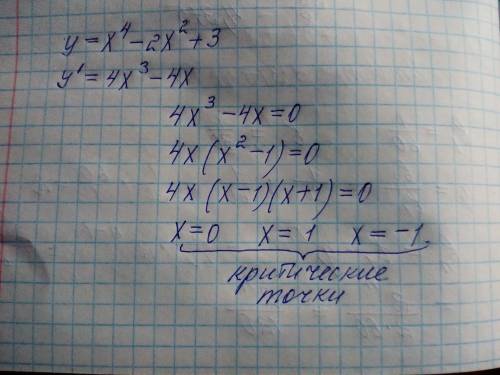 y = x⁴ - 2x² + 3
y' = 4x³ - 4x
4x³ - 4x = 0
4x (x² - 1) = 0
4x (x - 1)(x + 1) = 0
x = 0 x = 1 x = -1.
критические
точки